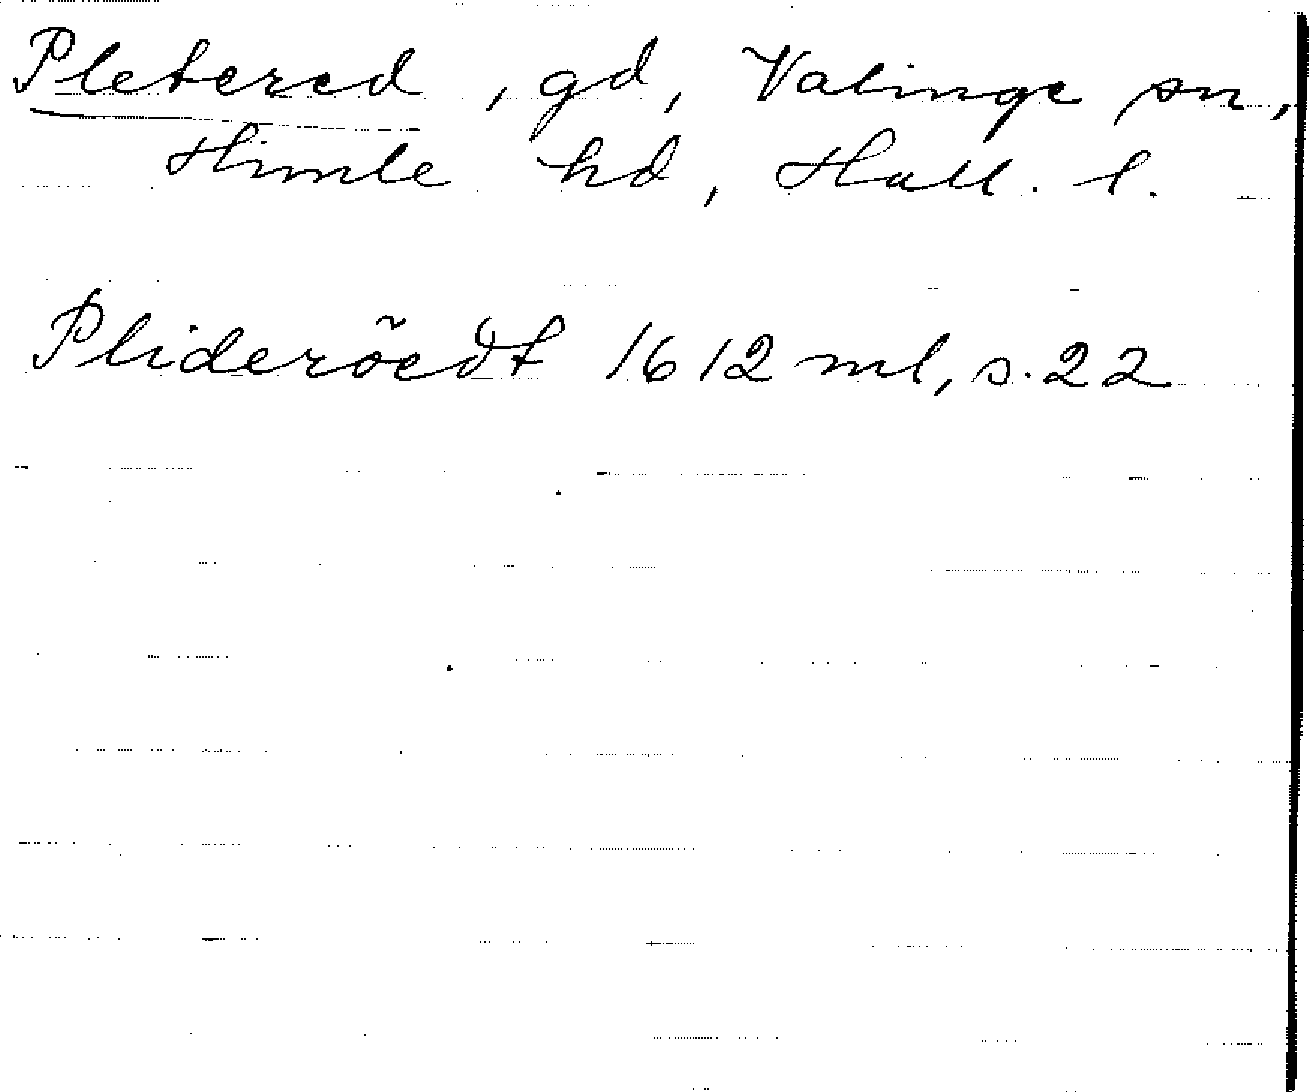 Pletered, gd, Valinge sn,
Himle hd, Hall. l.
Pliderõedt 1612 ml, s. 22